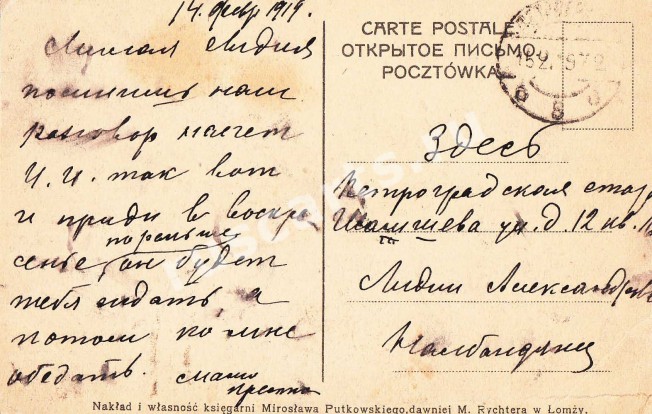 14 февр 1919.
Милая Лидия
помнишь наш
разговор насчет
И. И. так вот
и приди в воскре
сенье, пораньше он будет
тебя ждать, а
потом ко мне
обедать.
CARTE POSTALE
ОТКРЫТОЕ ПИСЬМО
POCZTÓWKA
Здесь
Петроградская стор
ул. д. 12 кв.
Лидии Александровне
Налбандянц
Nakład i własność księgarni Mirosława Putkowskiego, dawniej M. Rychtera w Łomży.